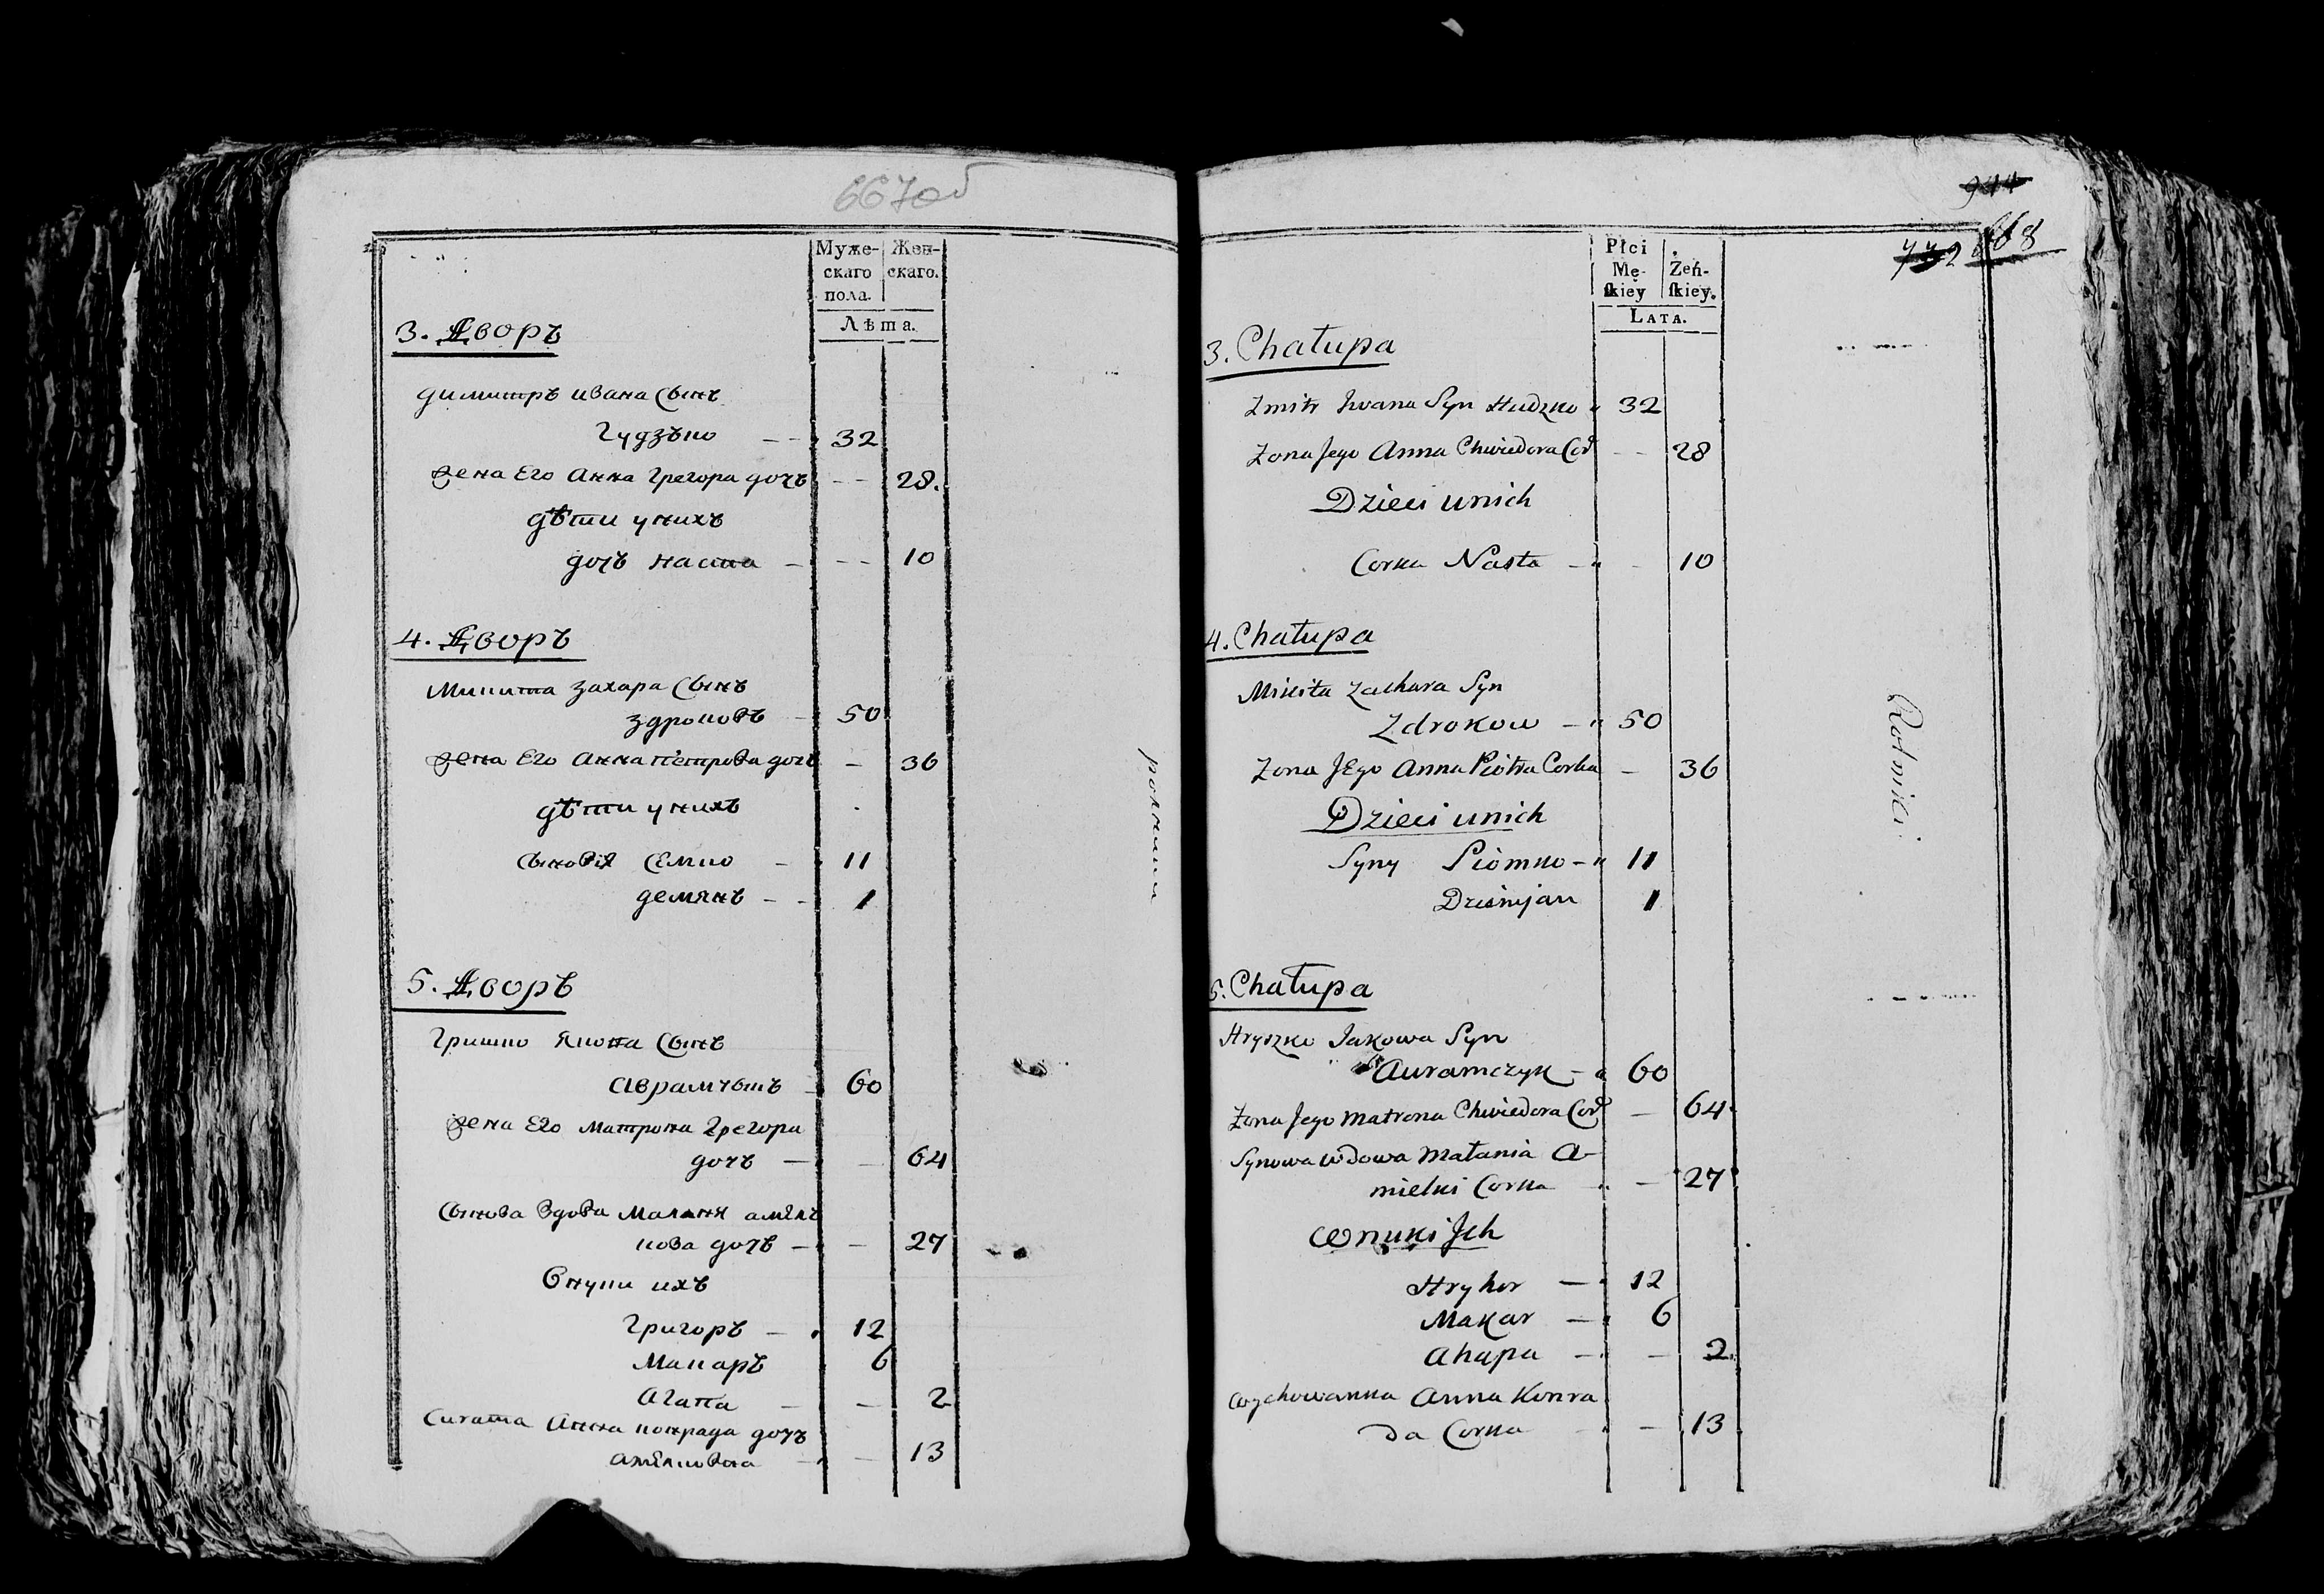 667об
Муже-
скаго
пола.
Жен-
скаго.
Лѣта.
3. Дворъ
Димитръ Ивана Сынъ
Гудзько — 32
Жена Его Анна Грегора дочъ — 28.
дѣти унихъ
дочъ Наста — 10
4. Дворъ
Микита Захара Сынъ
Здроковъ — 50
Жена Его Анна Петрова дочъ — 36
дѣти унихъ
Сыновія Семко — 11
Демянъ — 1
5. Дворъ
Гришко Якова Сынъ
Аврамчыкъ — 60
Жена Его Матрона Грегора
дочъ — 64
Сынова вдова Маланя амѣль
кова дочъ — 27
Внуки ихъ
Григоръ — 12
Макаръ 6
Агапа — 2
Сирата Анна конрада дочъ
13
944
732 668
Płci
Mę-
ſkiey
Żeń-
ſkiey.
LATA.
3. Chałupa
Zmitr Iwana Syn Hudzko 32
Zona Jego Anna Chwiedora Cor — 28
Dzieci unich
Corka Nasta — 10
4. Chałupa
Mikita Zachara Syn
Zdrokow — 50
Zona JEgo Anna Piotra Corka — 36
Dzieci unich
Syny Siomko — 11
Dziemjan 1
Rolniki
5. Chałupa
Hryszko Jakowa Syn
Auramczyk — 60
Zona Jego Matrona Chwiedora Cor — 64
Synowa wdowa Małania A-
mielki Corka — 27
Wnuki Jch
Hryhor — 12
Makar — 6
Ahapa — 2
Wychowanka Anna Konra
da Corka — 13